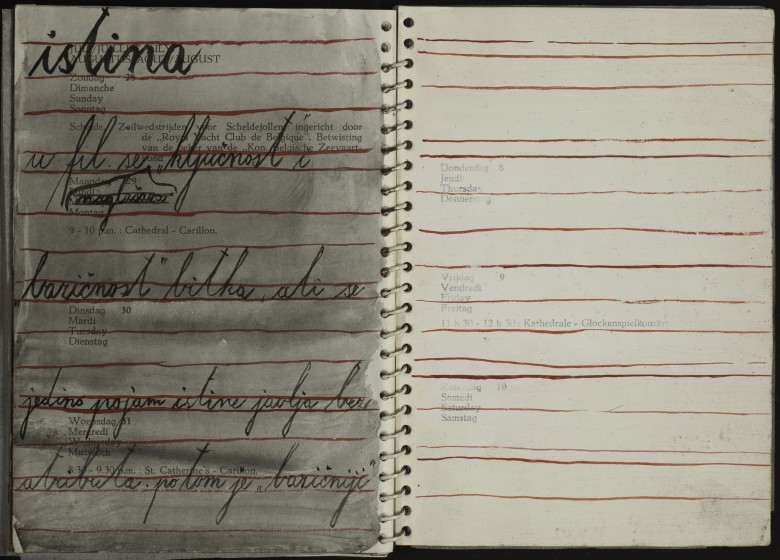 istina
JULI/JUILLET/JULY
AUGUSTUS/AOUT/AUGUST
Zondag 28
Dimanche
Sunday
Sonntag
Schelde: Zeilwedstrijden voor Scheldejollen ingericht door
de „Royal Yacht Club de Belgique". Betwisting
van de beker van de „Kon. Belgische Zeevaart-
bond
u fil. se „ključnost" i
Maandag 29
Montag
9 - 10 p.m. : Cathedral - Carillon.
"baričnost" bitka, ali se
Dinsdag 30
Mardi
Tuesday
Dienstag
jedino pojam istine javlja bez
Woensdag 31
Mercredi
Mittwoch
8.30 - 9.30 p.m. : St. Catherine's - Carillon.
atributa. potom je „baričniji"
Donderdag 8
Jeudi
Thursday
Donnerstag
Vrijdag 9
Vendredi
Friday
Freitag
11 h 30 - 12 h 30 : Kathedrale - Glockenspielkonzert
Zaterdag 10
Samedi
Saturday
Samstag